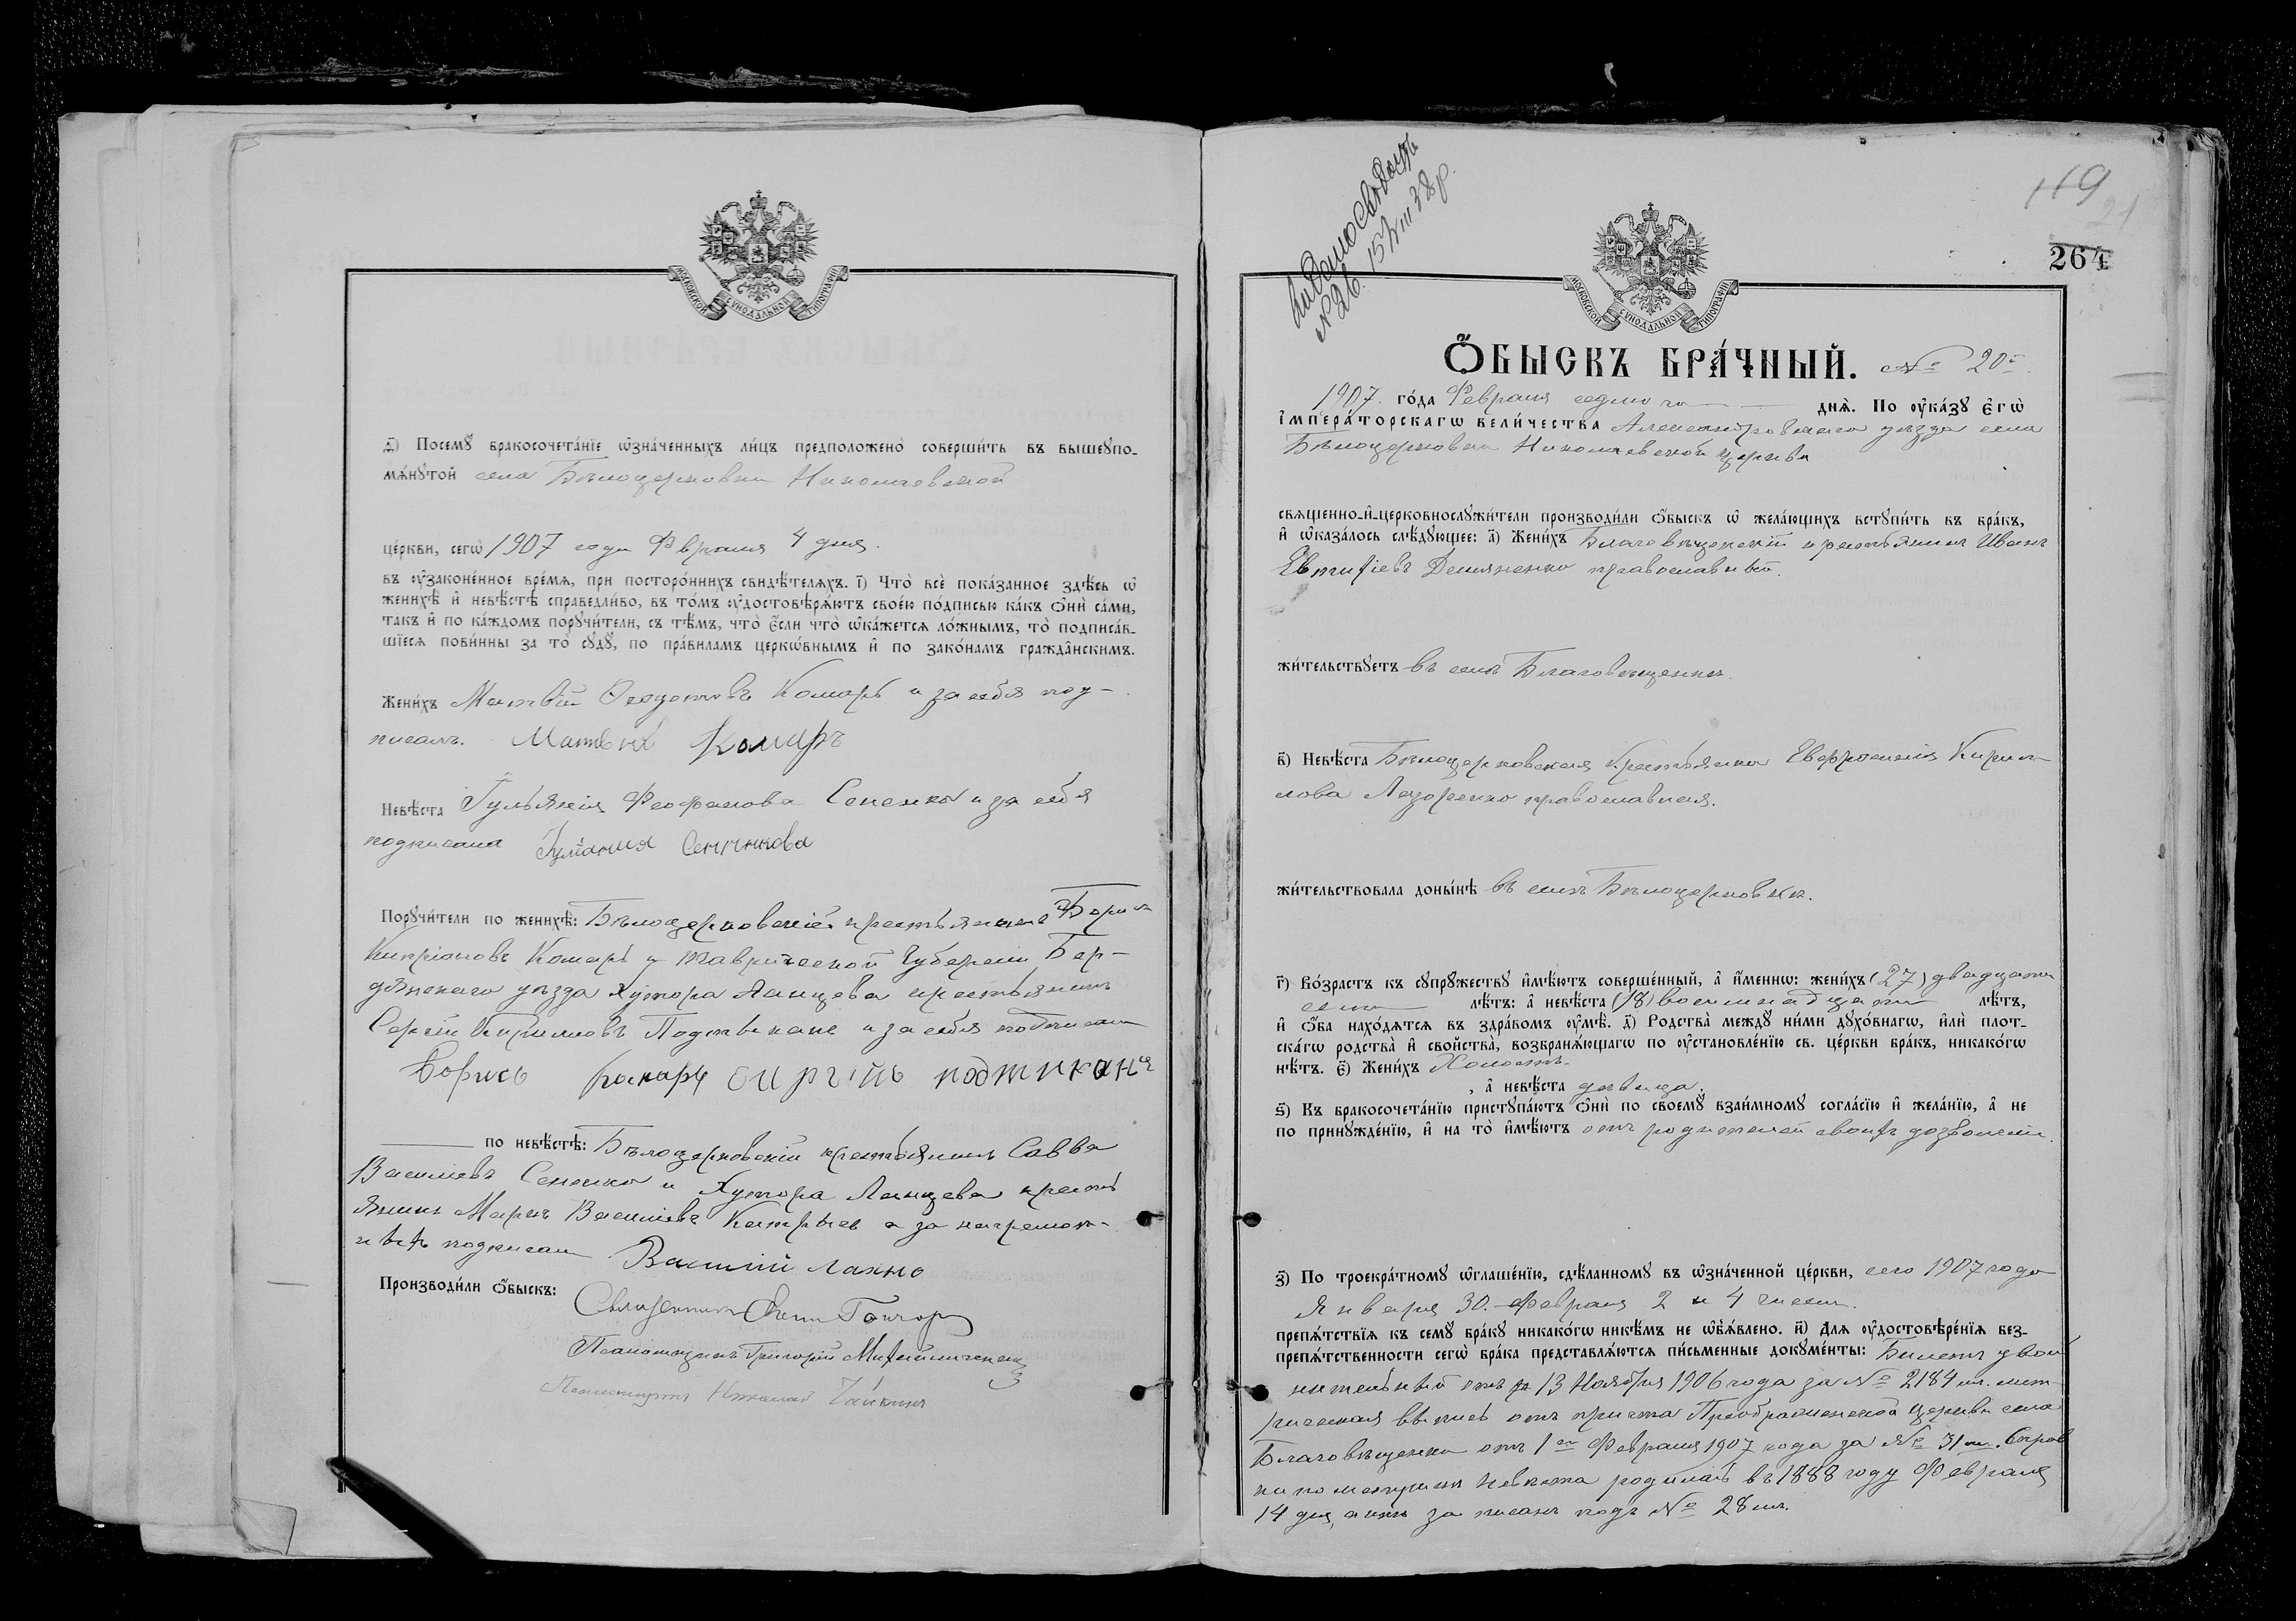 МОСКОВСКОЙ СѴНОДАЛЬНОЙ ТИПОГРАФІИ
ѳ҃) Посемꙋ̀ бракосочета́нїе ѡ҆зна́ченныхъ ли́цъ предположено̀ соверши́ть въ вышеꙋпо-
мѧ́нꙋтой села Бѣлоцерковки Николаевской
це́ркви, сегѡ̀ 1907 года Февраля 4 дня.
въ ᲂу҆зако́ненное вре́мѧ, при посторо́ннихъ свидѣ́телѧхъ. і҃) Что̀ всѐ пока́занное здѣ́сь ѡ҆
женихѣ̀ и҆ невѣ́стѣ справедли́во, въ то́мъ ᲂу҆достовѣрѧ́ютъ свое́ю по́дписью ка́къ ѻ҆нѝ са́ми,
та́къ и҆ по ка́ждомъ порꙋчи́тели, съ тѣ́мъ, что̀ є҆́сли что̀ ѡ҆ка́жетсѧ ло́жнымъ, то̀ подписа́в-
шїесѧ пови́нны за то̀ сꙋдꙋ̀, по пра́виламъ церко́внымъ и҆ по зако́намъ гражда́нскимъ.
Жени́хъ Матвѣй Ѳеодотовъ Комаръ и за себя под-
писалъ. Матвѣй Комаръ
Невѣ́ста Гульянія Феофанова Сененко и за себя
подписала Гуляния Сененкова
Порꙋчи́тели по женихѣ̀: Бѣлоцерковскій крестьянинъ Борисъ
Кипріановъ Комаръ и Таврической Губерніи Бер-
дянскаго уѣзда Хутора Ланцева крестьянинъ
Сергѣй Кириловъ Подтыкане и за себя подписали
Борисъ Комаръ Сиргѣй подтикане
по невѣ́стѣ: Бѣлоцерковскій крестьянинъ Савва
Василіевъ Сененко и Хутора Ланцева крест
янинъ Марко Василіевъ а за неграмот-
ныхъ подписалъ Василій Лахно
Производи́ли ѻ҆́быскъ:
Священникъ Гончаров
Псаломщикъ Григорій
Псаломщикъ Николай
Выдано свѣдоцтв
№26. 15/VIII 38р.
119
21
264
МОСКОВСКОЙ СѴНОДАЛЬНОЙ ТИПОГРАФІИ
Ѻ҆́БЫСКЪ БРА́ЧНЫЙ. № 20й
1907. го́да Февраля седмого днѧ̀. По ᲂу҆ка́зꙋ є҆гѡ̀
і҆мпера́торскагѡ вели́чества Александровскаго уѣзда села
Бѣлоцерковки Николаевской церкви
свѧще́нно-и҆-церковнослꙋжи́тели производи́ли ѻ҆́быскъ ѡ҆ жела́ющихъ встꙋпи́ть въ бра́къ,
и҆ ѡ҆каза́лось слѣ́дꙋющее: а҃) Жени́хъ Благовѣщенскій крестьянинъ Иванъ
Евтихіевъ Демяненко православный.
жи́тельствꙋетъ въ селѣ Благовѣщенки.
в҃) Невѣ́ста Бѣлоцерковская Крестьянка Евфросинія Кирил-
лова Лазоренко православная.
жи́тельствовала доны́нѣ въ селѣ Бѣлоцерковки.
г҃) Во́зрастъ къ сꙋпрꙋ́жествꙋ и҆мѣ́ютъ соверше́нный, а҆ и҆́меннѡ: жени́хъ (27) двадцати
семи лѣ́тъ: а҆ невѣ́ста (18) восемнадцати лѣ́тъ,
и҆ ѻ҆́ба нахо́дѧтсѧ въ здра́вомъ ᲂу҆мѣ̀. д҃) Родства̀ междꙋ̀ ни́ми дꙋхо́внагѡ, и҆лѝ пло́т-
ска́гѡ родства̀ и҆ свойства̀, возбранѧ́ющагѡ по ᲂу҆становле́нїю св. це́ркви бра́къ, никако́гѡ
нѣ́тъ. є҃) Жени́хъ Холостъ.
, а҆ невѣ́ста дѣвица.
ѕ҃) Къ бракосочета́нїю пристꙋпа́ютъ ѻ҆нѝ по своемꙋ̀ взаи́мномꙋ согла́сїю и҆ жела́нїю, а҆ не
по принꙋжде́нїю, и҆ на то̀ и҆мѣ́ютъ отъ родителей своихъ дозволеніе.
з҃) По троекра́тномꙋ ѡ҆глаше́нїю, сдѣ́ланномꙋ въ ѡ҆зна́ченной це́ркви, сего 1907 года
Января 30. Февраля 2 и 4 чиселъ.
препѧ́тствїѧ къ семꙋ̀ бра́кꙋ никако́гѡ никѣ́мъ не ѡ҆бѧ́влено. и҃) Длѧ ᲂу҆достовѣре́нїѧ без-
препѧ́тственности сегѡ̀ бра́ка представлѧ́ютсѧ пи́сьменные докꙋме́нты: Билетъ увол
нительный отъ 13 Ноября 1906 года за № 2184 мъ. мет-
рическая выпись отъ причта Преображенской церкви села
Благовѣщенки отъ 1го Февраля 1907 года за № 31 мъ. Справ
ки по метрикѣ Невѣста родилась въ 1888 году Февраля
14 дня, актъ записанъ подъ № 28 мъ.